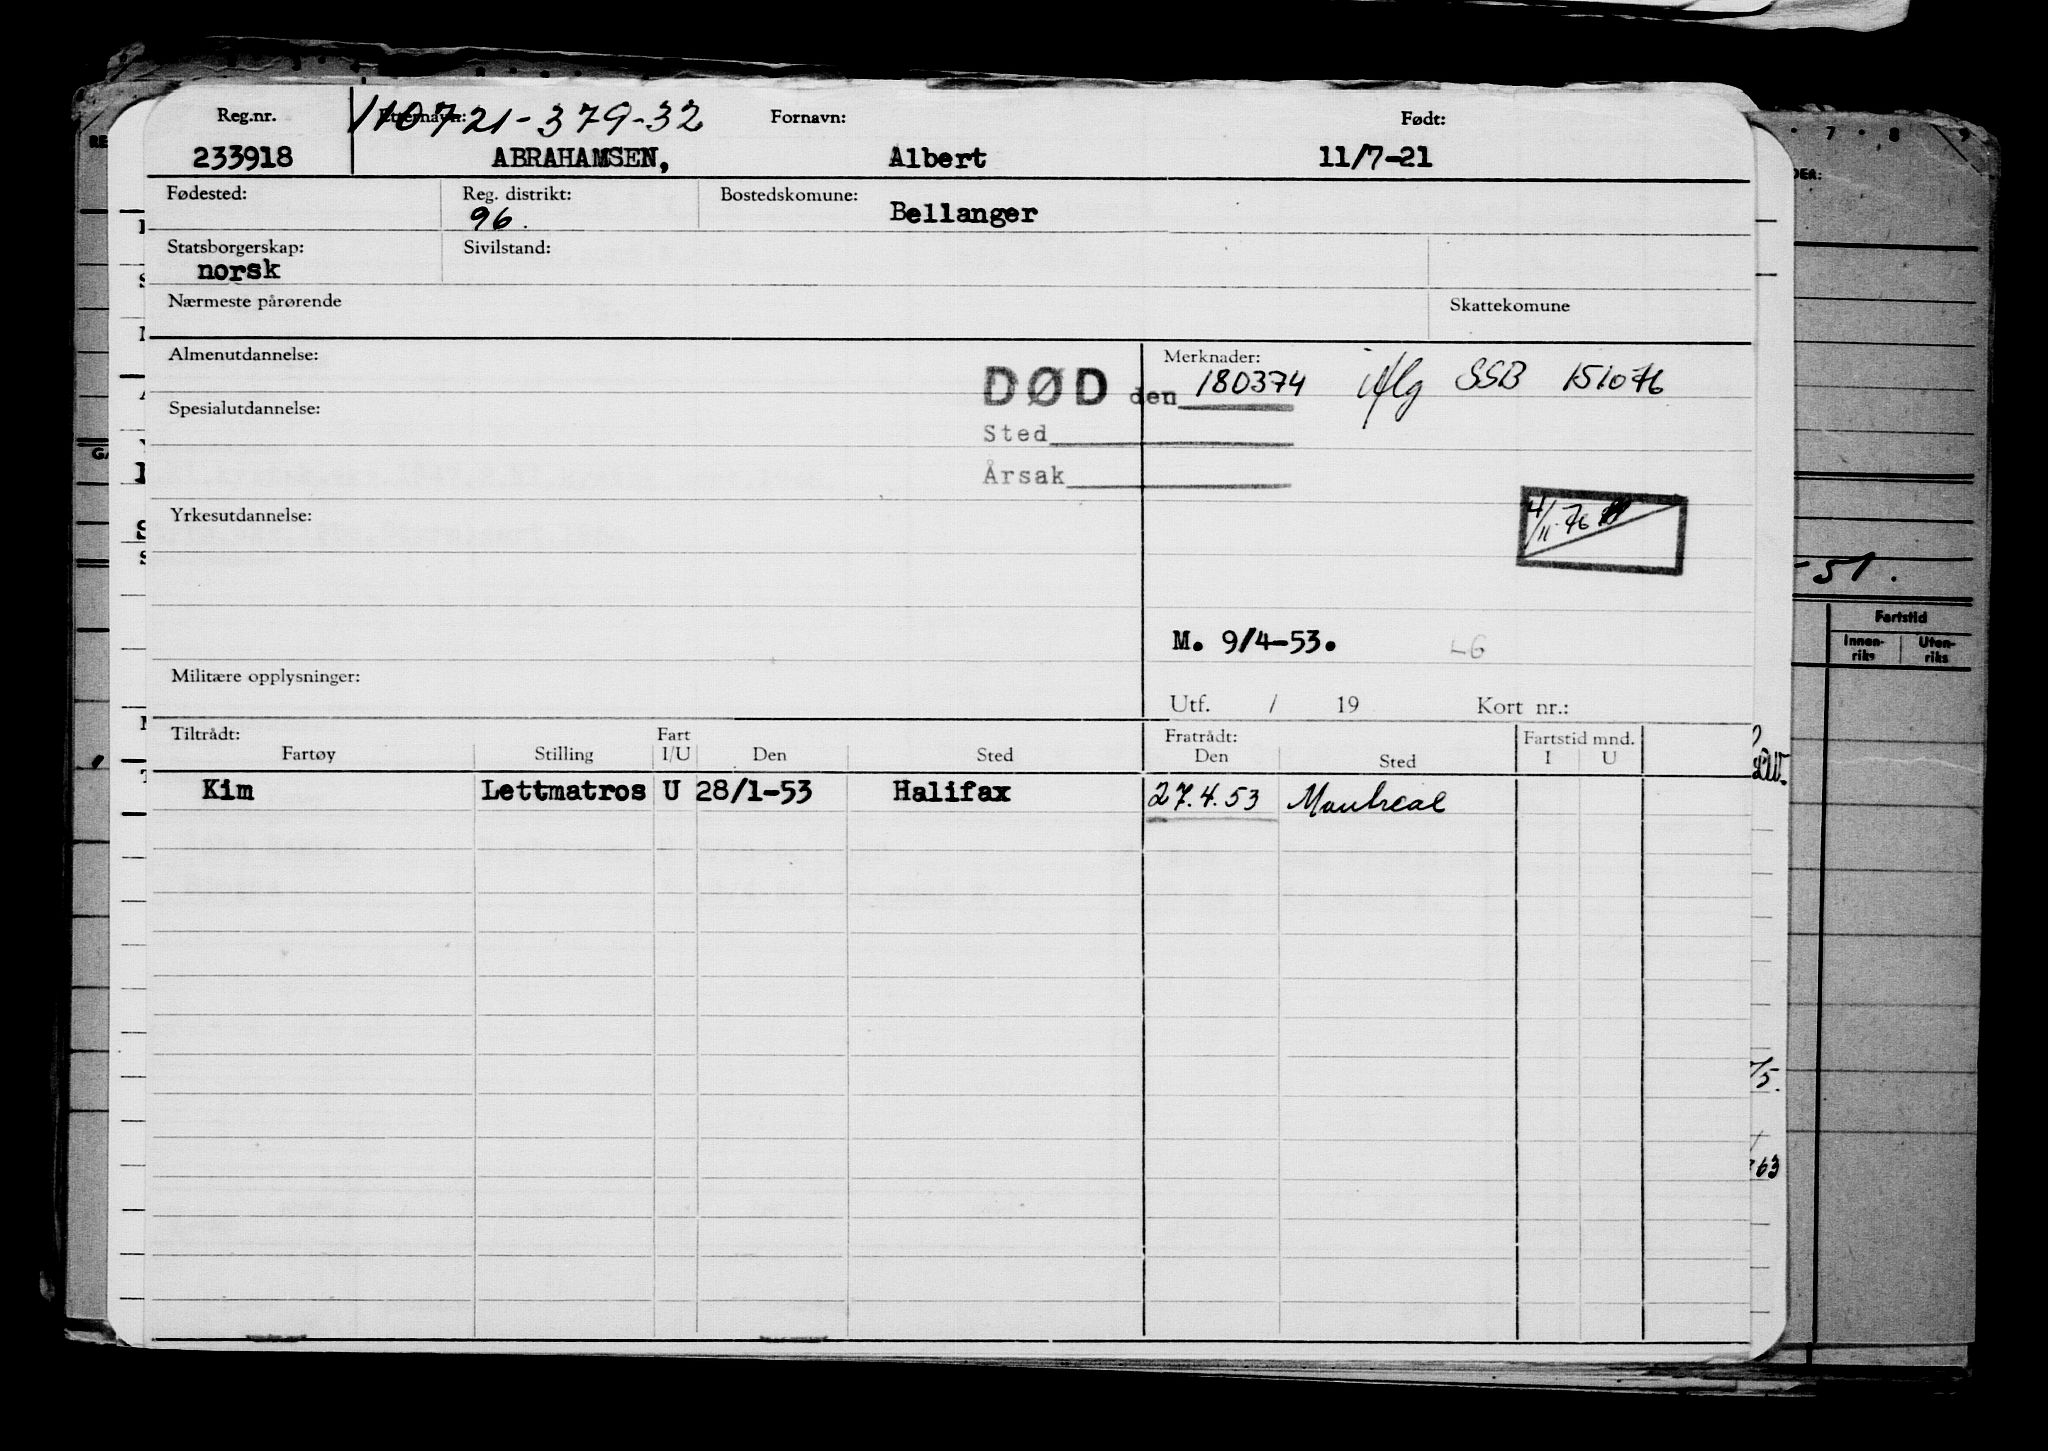 Reg.nr. Etternavn: 110721-379-32 Fornavn: Født:
233918 ABRAHAMSEN, Albert 11/7-21
Fødested: Reg. distrikt: Bostedskomune:
96. Bellanger
Statsborgerskap: Sivilstand:
norsk
Nærmeste pårørende Skattekomune
Almenutdannelse: Merknader:
DØD den 180374 iflg SSB 151076
Spesialutdannelse:
Sted
Årsak
Yrkesutdannelse: 4/11-76
M. 9/4-53. LG
Militære opplysninger:
Utf. / 19 Kort nr.:
Tiltrådt: Fart Fratrådt: Fartstid mnd.
Fartøy Stilling I/U Den Sted Den Sted I U
Kim Lettmatros U 28/1-53 Halifax 27.4.53 Montreal
7 8 9
-51.
Fartstid
Innen-riks Uten-riks
/5.
63